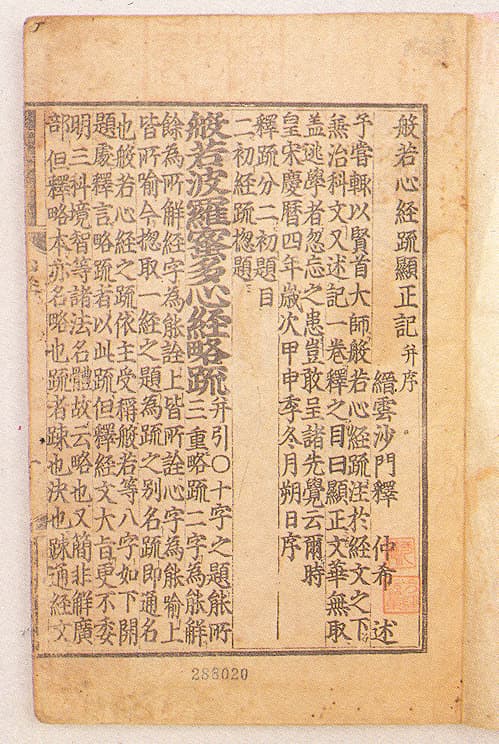 般若心経疏顯正記并序
縉雲沙門釋仲希述
予嘗輙以賢首大師般若心経疏注於経文之下
兼治科文又述記一卷釋之目曰顯正文華無取
盖逃學者忽忘之患豈敢呈諸先覺云爾時
皇宋慶曆四年歲次甲申季冬月朔日序
釋疏分二初題目
二初経疏揔題
般若波羅蜜多心経略疏并引〇十字之題能所
三重略疏二字為能解
餘為所解経字為能詮上皆所詮心字為能喻上
皆所喻今揔取一経之題為疏之别名疏即通名
也般若心経之疏依主受稱般若等八字如下開
題處釋言略疏者以此疏但釋経文大旨更不委
明三科境智等諸法名體故云略也又簡非解廣
部但釋略本亦名略也疏者踈也決也踈通経文
288020